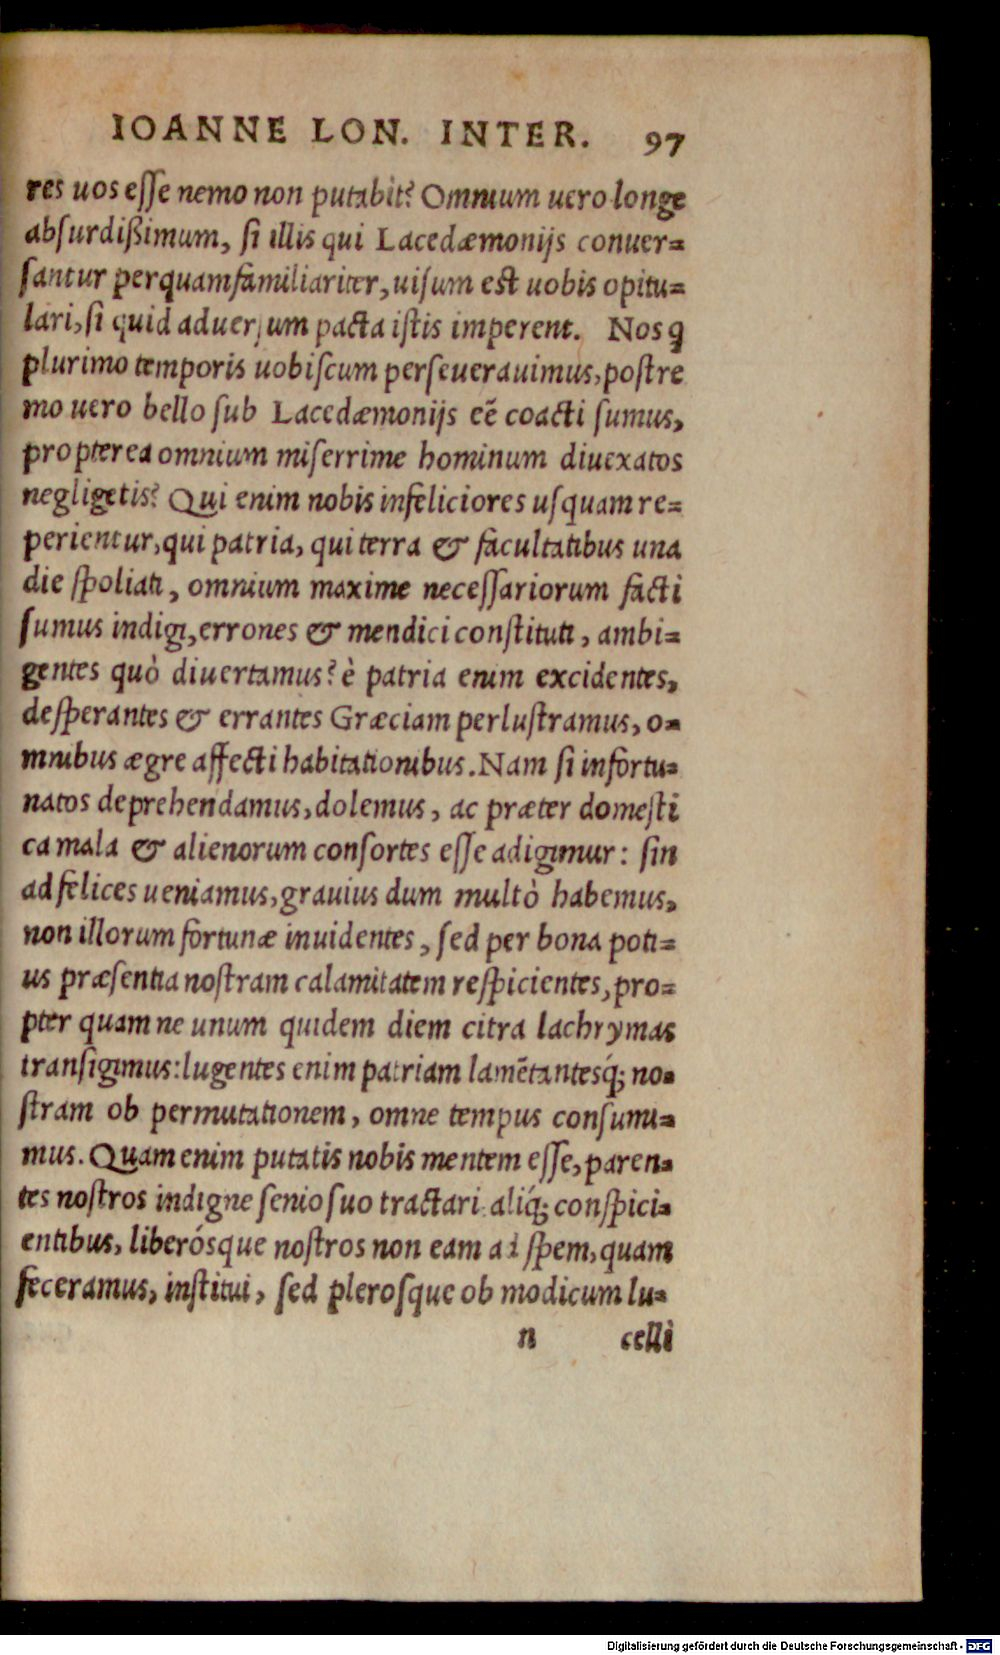 IOANNE LON. INTER. 97
res uos esse nemo non putabit? Omnium uero longe
absurdißimum, si illis qui Lacedæmonijs conuer=
santur perquamfamiliariter, uisum est uobis opitu=
lari, si quid aduersum pacta istis imperent. Nos q
plurimo temporis uobiscum perseuerauimus, postre
mo uero bello sub Lacedæmonijs eē coacti sumus,
propterea omnium miserrime hominum diuexatos
negligetis? Qui enim nobis infeliciores usquam re=
perientur, qui patria, qui terra & facultatibus una
die spoliati, omnium maxime necessariorum facti
sumus indigi, errones & mendici constituti, ambi=
gentes quò diuertamus? è patria enim excidentes,
desperantes & errantes Græciam perlustramus, o=
mnibus ægre affecti habitationibus. Nam si infortu=
natos deprehendamus, dolemus, ac præter domesti
ca mala & alienorum consortes esse adigimur: sin
ad felices ueniamus, grauius dum multò habemus,
non illorum fortunæ inuidentes, sed per bona poti=
us præsentia nostram calamitatem respicientes, pro=
pter quam ne unum quidem diem citra lachrymas
transigimus: lugentes enim patriam lamētantesq́; no=
stram ob permutationem, omne tempus consumi=
mus. Quam enim putatis nobis mentem esse, paren=
tes nostros indigne senio suo tractari aliq́; conspici=
entibus, liberósque nostros non eam ad spem, quam
feceramus, institui, sed plerosque ob modicum lu=
n celli
Digitalisierung gefördert durch die Deutsche Forschungsgemeinschaft - DFG